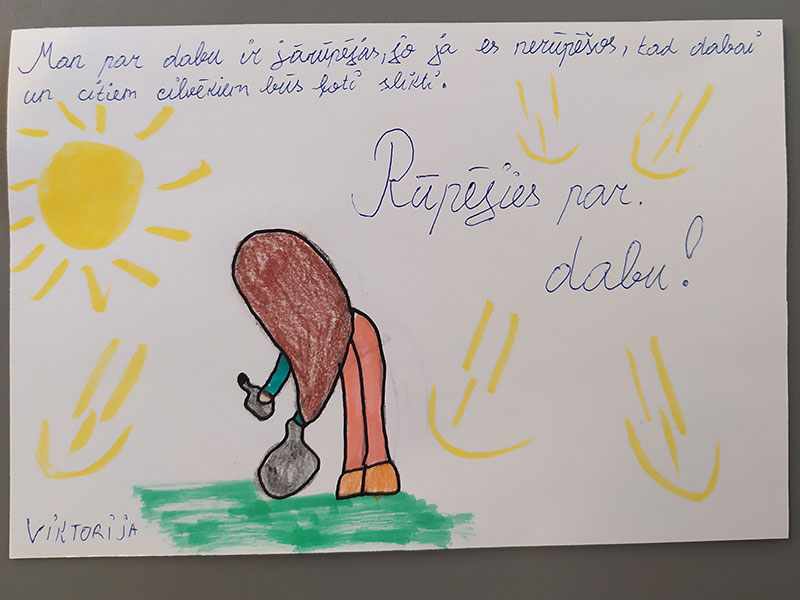 Man par dabu ir jārūpējas, jo ja es nerūpēšos, tad dabai
un citiem cilvēkiem būs ļoti slikti.
Rūpējies par
dabu!
VIKTORIJA